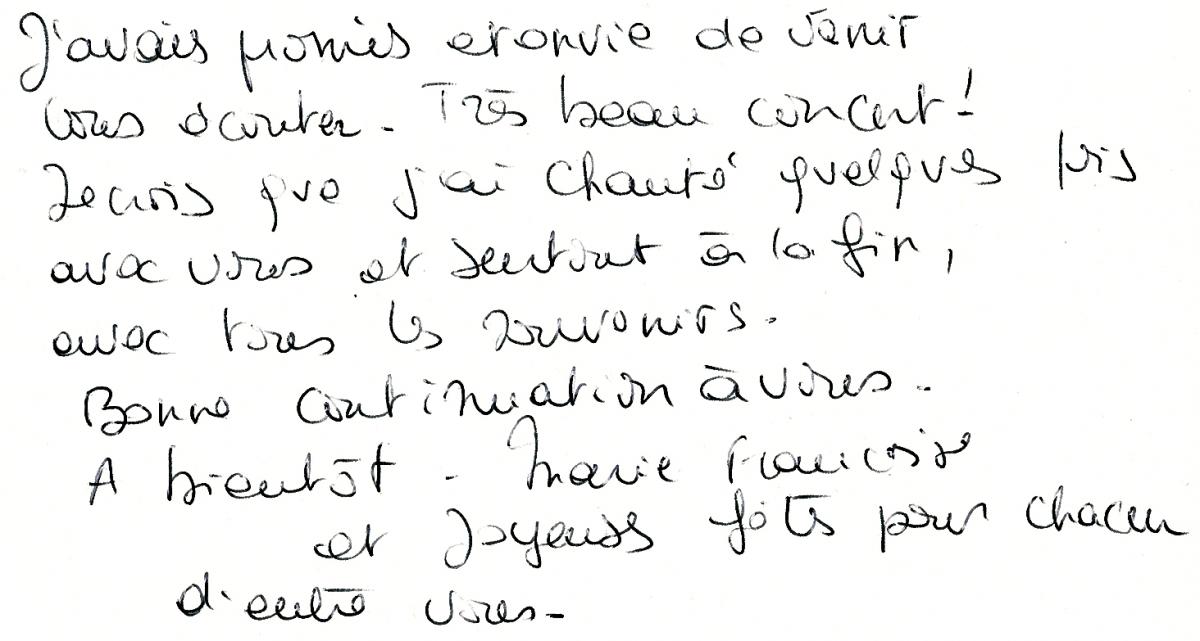 J'avais promis et envie de venir
vous écouter. Très beau concert!
Je crois que j'ai chanté quelques fois
avec vous et surtout à la fin,
avec tous les souvenirs.
Bonne continuation à vous.
A bientôt - Marie Françoise
et Joyeuses fêtes pour chacun
d'entre vous-